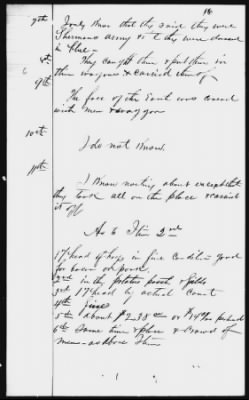 18
7th I only know that they said they were
Shermans army & they were dressed
in blue -
8th They caught them & put them in
their wagons & carried them off
9th
The face of the earth was covered
with men & waggons
10th
I do not Know.
11th
I Know nothing about except that
they took all on the place & carried
it off
As to Item 2nd
17 head of hogs in fine condition good
for bacon or pork.
2nd in the potatoe patch & fields
3rd 17 head by actual count
4th fines
5th about $2.38
6th Same time & place & crowd of
men - as above Item